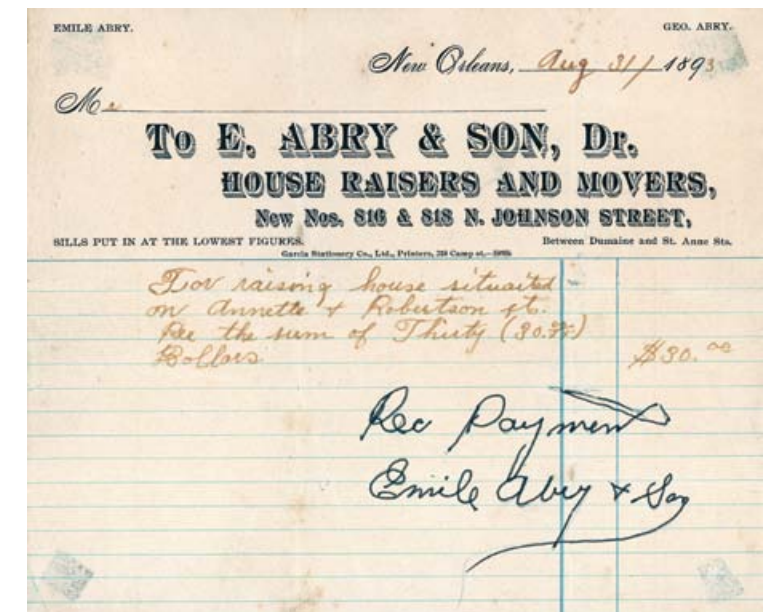 EMILE ABRY. GEO. ABRY.
New Orleans, Aug 31/ 1893
M
To E. ABRY & SON, Dr.
HOUSE RAISERS AND MOVERS,
New Nos. 816 & 818 N. JOHNSON STREET,
SILLS PUT IN AT THE LOWEST FIGURES. Between Dumaine and St. Anne Sts.
Garcia Stationery Co., Ltd., Printers, Camp st.
For raising house situaited
on Annette & Robertson st.
Rec the sum of Thirty (30.00)
Dollars $30.00
Rec Payment
Emile Abry & Son